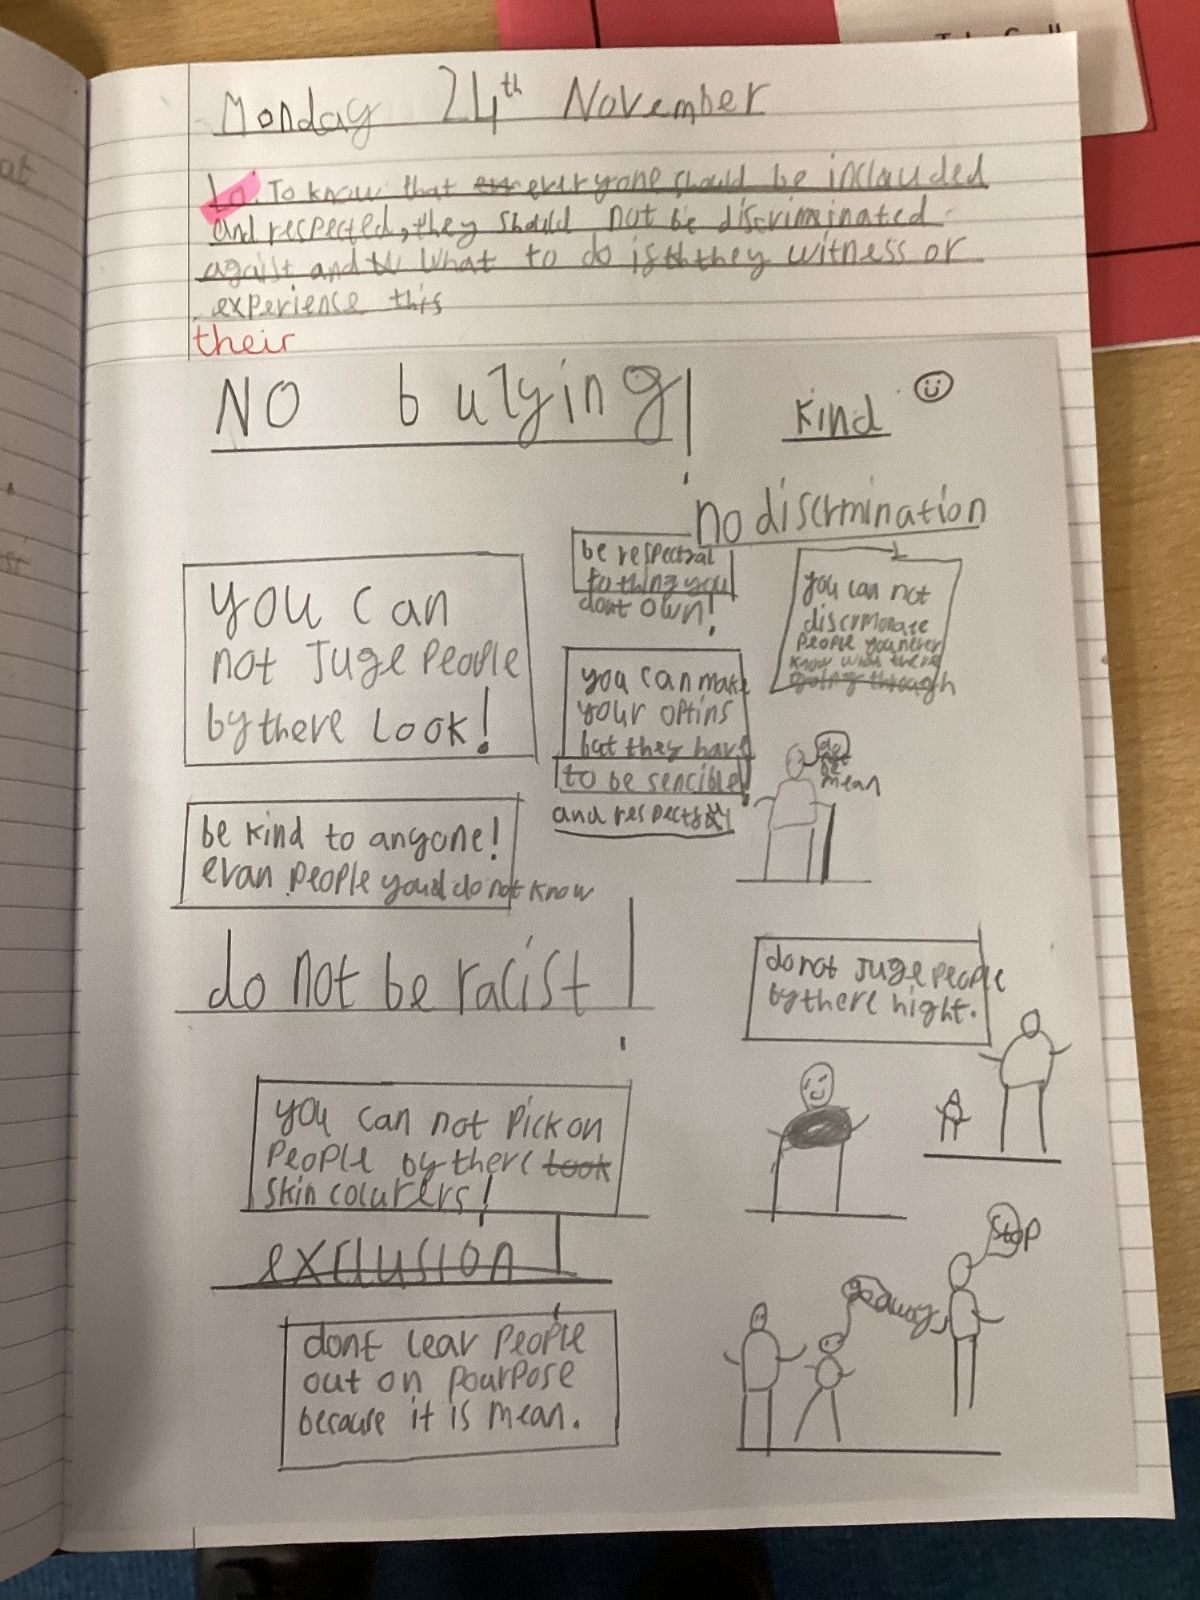 Monday 24th November
Lo: To know that everyone should be inclauded
and respected, they should not be discriminated
agaist and what to do is they witness or
experience this
their
NO bullying!
Kind
no discrmination
be respectral
to thing you
dont own!
you can not
discrmonate
people you never
know what there
going through
you can
not Juge people
by there Look!
you can make
your optins
but they have
to be sencible!
and respectful
do
not
be
mean
be kind to anyone!
evan people you do not know
do not be racist!
do not Juge people
by there hight.
you can not pick on
people by there took
skin colurers!
exclusion!
Stop
go away
dont leav people
out on pourpose
because it is mean.